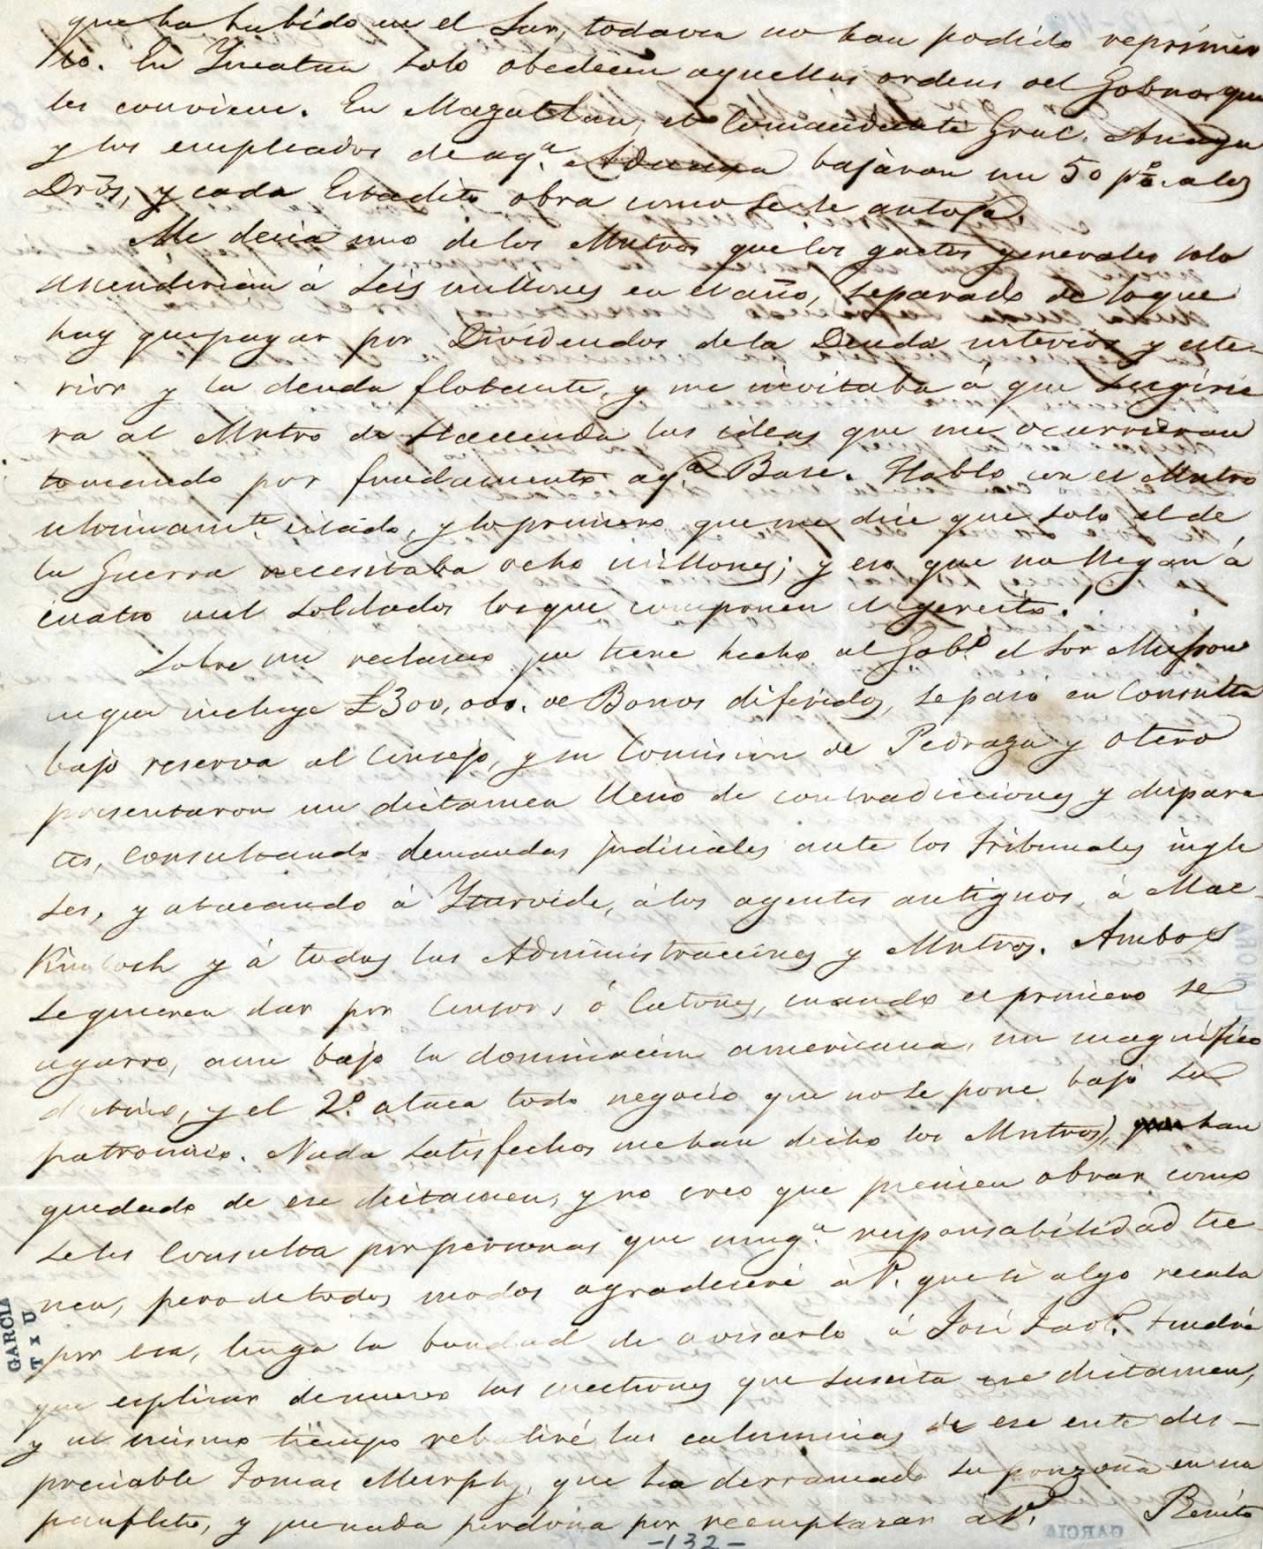 que ha habido en el Sur, todavia no han podido reprimir
lo. En Yucatan solo obedecen aquellas ordens del Gobno. que
les conviene. En Mazatlan, el Comandante Gral. Anaya
y los empleados de aqa. Aduana bajaron un 50 p% a los
Dros, y cada Estadito obra como se le antoja.
Me decia uno de los Mntros que los gastos generales solo
ascenderian á seis millones en el año, separado de lo que
hay que pagar por Dividendos de la Deuda interior y este-
rior y la deuda flotante, y me invitaba á que sugirie
ra al Mntro de Hacienda las ideas que me ocurrieran
tomando por fundamento aqa. Base. Hablo con el Mntro
ultimamte. citado, y lo primero que me dice que solo el de
la Guerra necesitaba ocho millones; y eso que no llegan á
cuatro mil soldados los que componen el egercito.
Sobre mi reclamo que tiene hecho al Gobo. el Sor
en que incluye £300,000. de Bonos diferidos, se pasó en Consulta
bajo reserva al Consejo, y su Comision de Pedraza y Otero
presentaron un dictamen lleno de contradicciones y dispara
tes, consultando demandas judiciales ante los tribunales ingle
ses, y atacando á Yturvide, á los agentes antiguos, á Mac-
Kintosh y á todas las Administraciones y Mntros. Ambos
se quieren dar por Censores ó Catones, cuando el primero se
agarro, aun bajo la dominacion americana, un magnifico
destino, y el 2º. ataca todo negocio que no se pone bajo su
patrocinio. Nada satisfechos me han dicho los Mntros, que han
quedado de ese dictamen, y no creo que piensen obrar como
se les consulta por personas que ninga. responsabilidad tie-
nen, pero de todos modos agradeceré á V. que si algo recala
por esa, tenga la bondad de avisarlo á José Tendra
que esplicar de nuevo las cuestiones que suscita ese dictamen,
y al mismo tiempo rebatiré las calumnias de ese ente des-
preciable Tomas Murphy, que ha derramado su ponzoña en un
panfleto, y que nada perdona por reemplazar á V. Benito
-132-
GARCIA
T x U
GARCIA